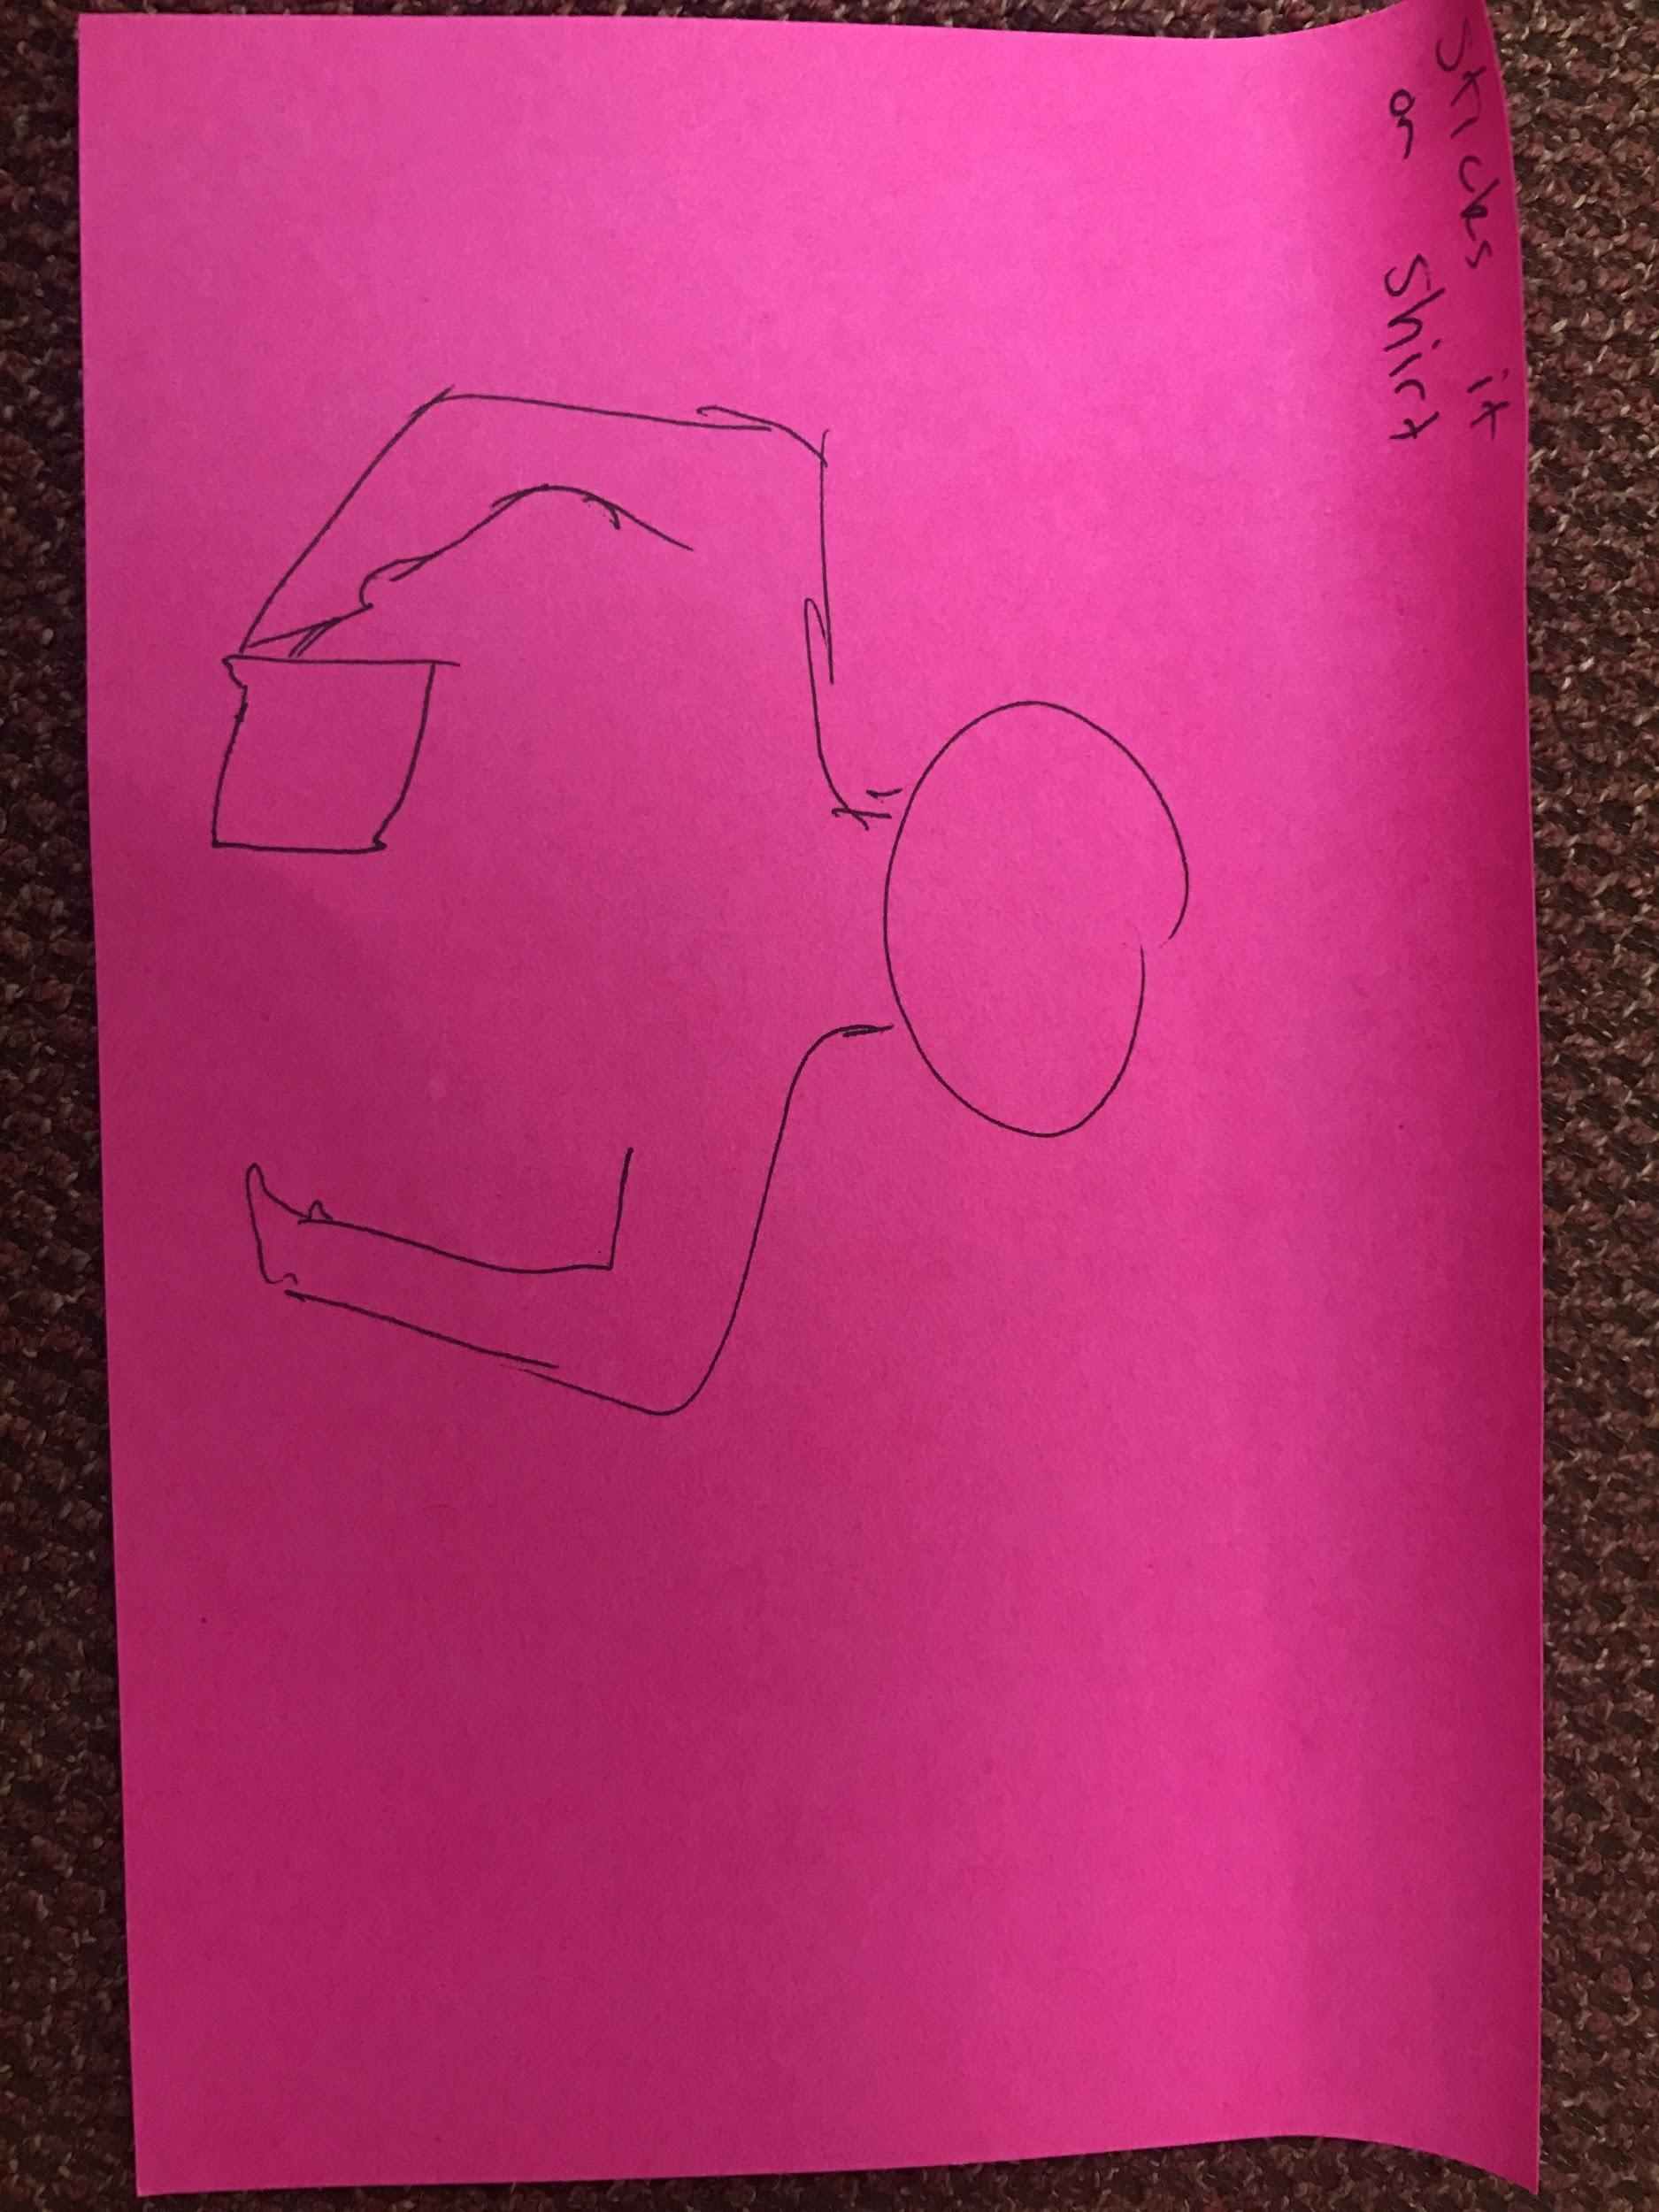 Sticks it
on Shirt